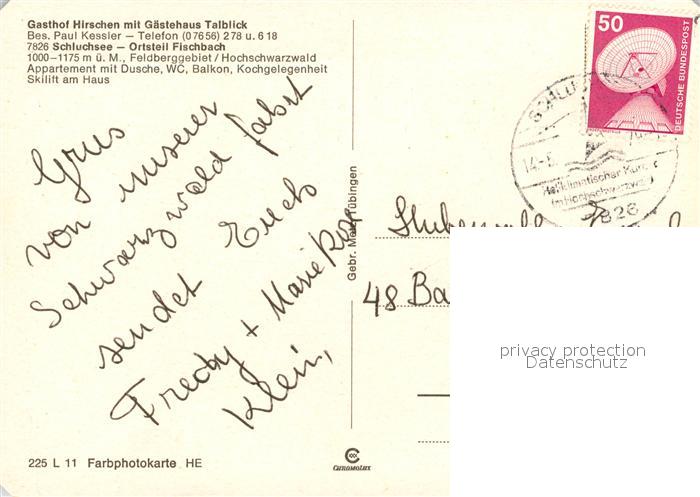 Gasthof Hirschen mit Gästehaus Talblick
Bes. Paul Kessler — Telefon (07656) 278 u. 618
7826 Schluchsee — Ortsteil Fischbach
1000–1175 m ü. M., Feldberggebiet / Hochschwarzwald
Appartement mit Dusche, WC, Balkon, Kochgelegenheit
Skilift am Haus
Grus
von unserer
Schwarzwald fahrt
sendet Euch
Fredy + Marie Rose
Klein,
225 L 11 Farbphotokarte HE
Gebr. Metz Tübingen
CHROMOLUX
50
DEUTSCHE BUNDESPOST
Heilklimatischer Kurort
im Hochschwarzwald
7826
48 Ba
privacy protection
Datenschutz